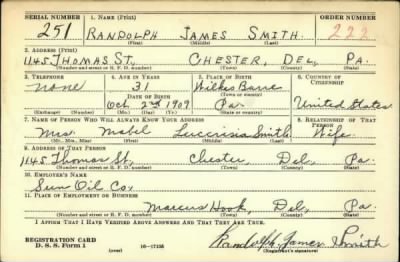 SERIAL NUMBER 1. NAME (Print) ORDER NUMBER
251 RANDOLPH JAMES SMITH 222
(First) (Middle) (Last)
2. ADDRESS (Print)
1145 THOMAS ST. CHESTER, DEL, PA.
(Number and street or R. F. D. number) (Town) (County) (State)
3. TELEPHONE 4. AGE IN YEARS 5. PLACE OF BIRTH 6. COUNTRY OF CITIZENSHIP
none 31 Wilkes Barre
DATE OF BIRTH (Town or county)
Oct 2nd 1909 Pa United States
(Exchange) (Number) (Mo.) (Day) (Yr.) (State or country)
7. NAME OF PERSON WHO WILL ALWAYS KNOW YOUR ADDRESS 8. RELATIONSHIP OF THAT PERSON
Mrs. Mabel Lucerisia Smith Wife
(Mr., Mrs., Miss) (First) (Middle) (Last)
9. ADDRESS OF THAT PERSON
1145 Thomas St, Chester, Del, Pa.
(Number and street or R. F. D. number) (Town) (County) (State)
10. EMPLOYER'S NAME
Sun Oil Co.
11. PLACE OF EMPLOYMENT OR BUSINESS
Marcus Hook, Del, Pa.
(Number and street or R. F. D. number) (Town) (County) (State)
I AFFIRM THAT I HAVE VERIFIED ABOVE ANSWERS AND THAT THEY ARE TRUE.
REGISTRATION CARD
D. S. S. Form 1 (over) 16—17105 Randolph James Smith
(Registrant's signature)